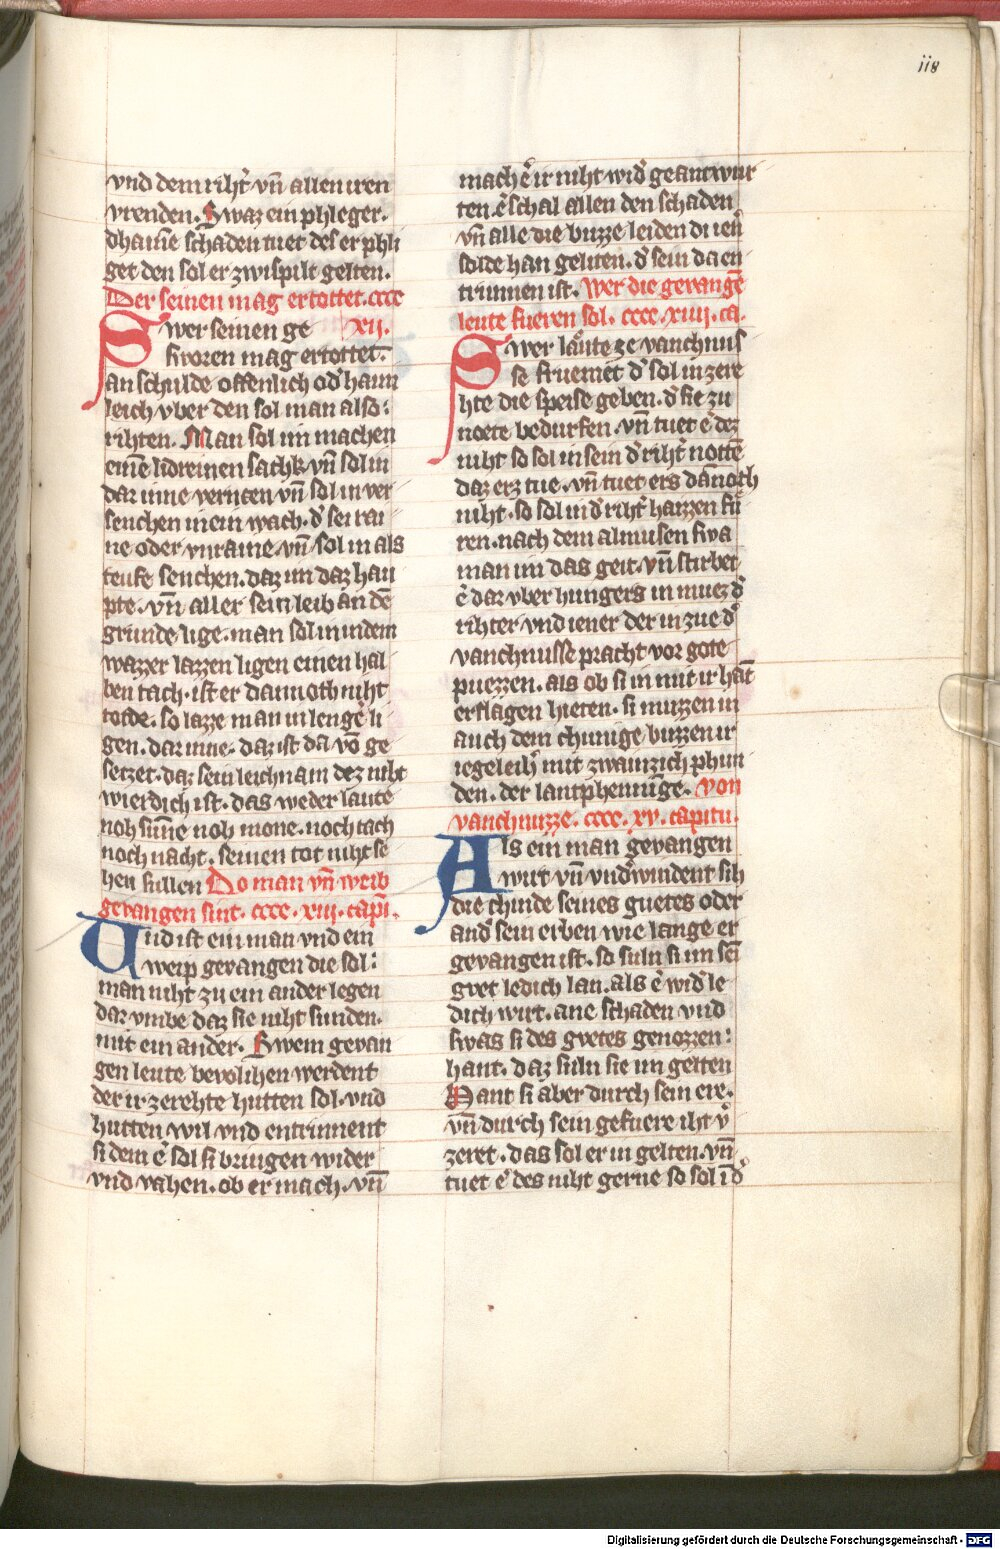 118
vnd dem riht͛ vn̄ allen iren
vrenden. Swaz ein phleger.
dhaine schaden tuet des er phli
get den sol er zwispilt gelten.
Der seinen mag ertottet. cccc
xii.
Swer seinen ge
kroren mag ertottet.
an schulde offenlich od͛ haim
leich vber den sol man also:
rihten. Man sol im machen
eine lidreinen sachk vn̄ sol in
dar inne verniten vn̄ sol in ver
senchen in ein wach. d͛ sei rai
ne oder vnraine. vn̄ sol in als
teufe senchen. daz im daz hau
pte. vn̄ aller sein leib an dē
grunde lige. man sol in in dem
wazzer lazzen ligen einen hal
ben tach. ist er dannoth niht
tode. so lazze man in lenge͛ li
gen. dar inne. daz ist da vō ge
setzet. daz sein leichnam dez niht
wierdich ist. das weder laute
noh sunne noh mone. noch tach
noch nacht. seinen tot niht se
hen sullen Do man vn̄ weib
gevangen sint. cccc. xiii. capi.
Und ist ein man vnd ein
weip gevangen die sol:
man niht zu ein ander legen
dar vmbe daz sie niht sunden.
mit ein ander. Swem gevan
gen leute bevolihen werdent
der ir zerehte hutten sol. vnd
hutten wil vnd entrinnent
si dem e͛ sol si bringen wider
vnd vahen. ob er mach. vn̄
mach e͛ ir niht wid͛ geantwur
ten. e͛ schal allen den schaden
vn̄ alle die buzze leiden di ien͛
solde han geliten. d͛ sein da en
trunnen ist. Wer die gevangē
leute fueren sol. cccc. xiiii. ca.
Swer laute ze vanchnus
se fruemet d͛ sol in zere
hte die speise geben. d͛ sie zu
noete bedurfen. vn̄ tuet e͛ dez
niht so sol in sein d͛ riht͛ nottē
daz erz tue. vn̄ tuet ers dānoch
niht. so sol in d͛ riht͛ haizzen fu͛
ren. nach dem almusen swa
man im das geit. vn̄ stirbet
e͛ dar vber hungers in muez d͛
rihter vnd iener der in zue d͛
vanchnusse pracht vor gote
puezzen. als ob si in mit ir hāt
erslagen hieten. si muzzen in
auch dem chunige buzzen ir
iegeleih͛ mit zwainzich phun
den. der lantphenninge. von
vanchnuzze. cccc. xv. capitu.
Als ein man gevangen
wirt vn̄ vnd͛windent sih
die chinde seines guetes oder
and͛ sein erben wie lange er
gevangen ist. so suln si im sei
gvet ledich lan. als e͛ wid͛ le
dich wirt. ane schaden vnd
swas si des gvetes genozzen:
hant. daz suln sie im gelten
Hant si aber durch sein ere.
vn̄ durch sein gefuere iht v͛
zeret. das sol er in gelten. vn̄
tuet e͛ des niht gerne so sol i͂ d͛
Digitalisierung gefördert durch die Deutsche Forschungsgemeinschaft - DFG